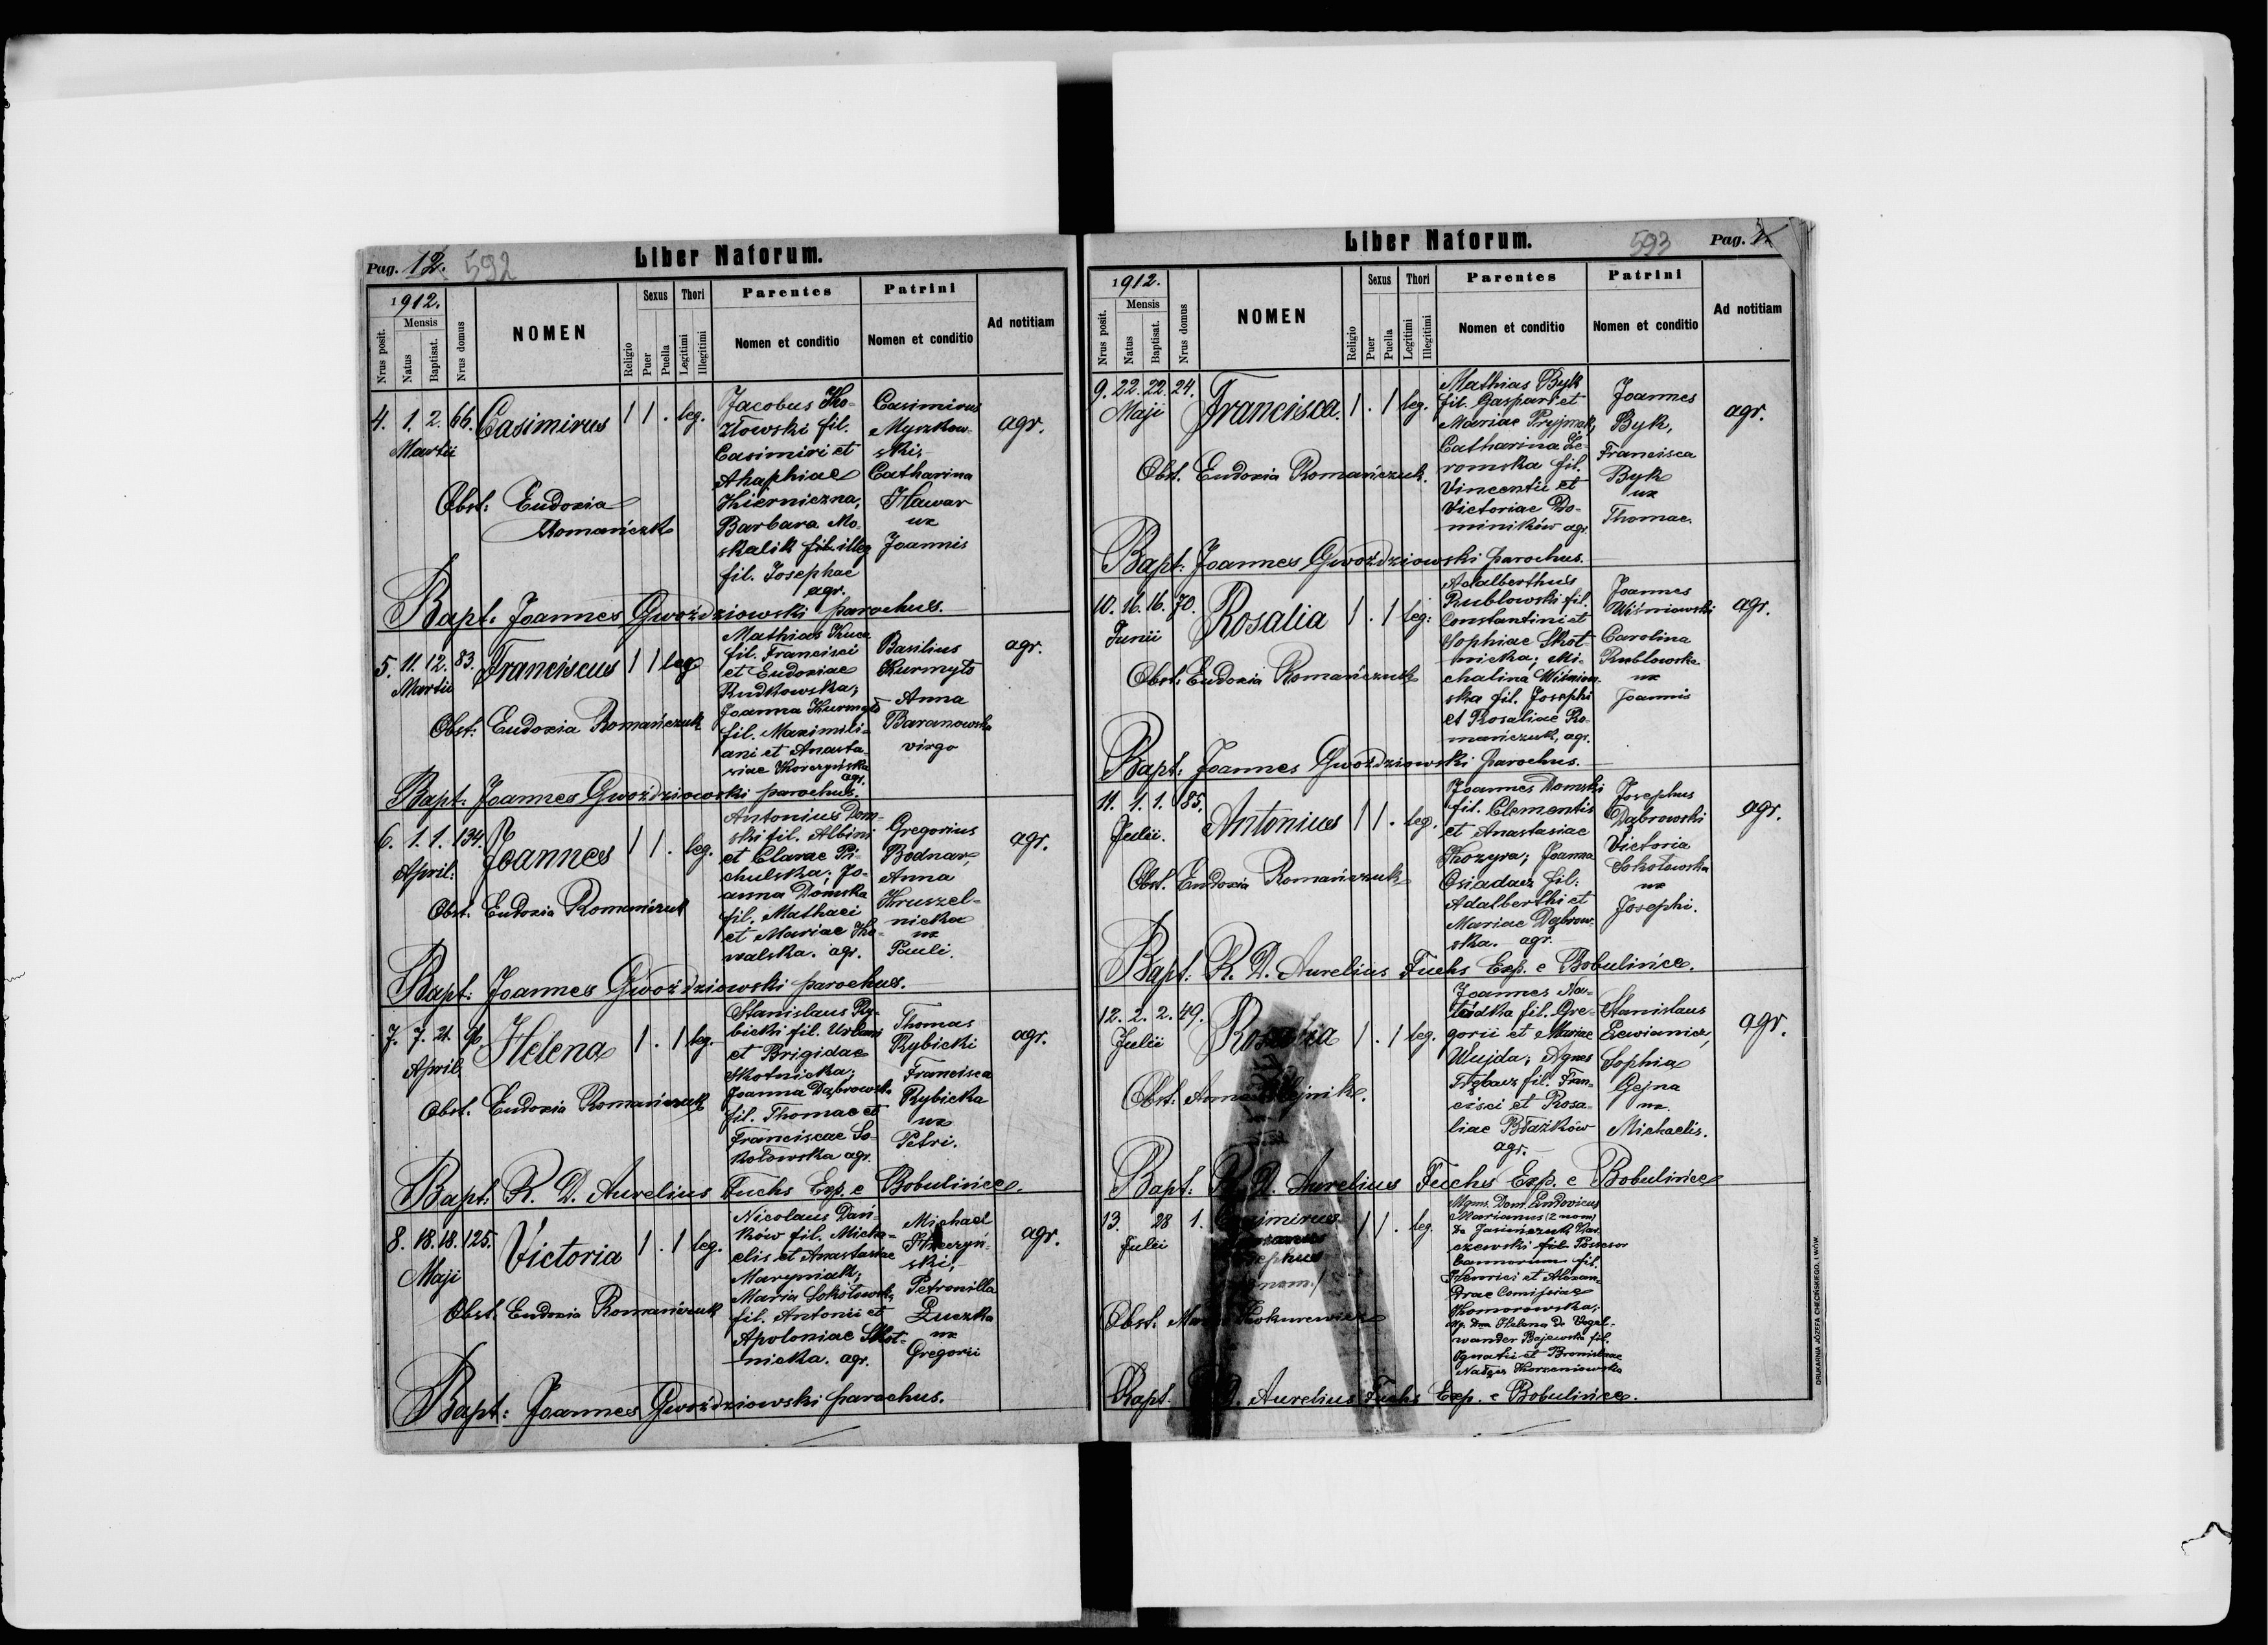 Pag. 12. 592
Liber Natorum.
1912.
Nrus posit.
Mensis
Natus
Baptisat.
Nrus domus
NOMEN
Religio
Sexus
Puer
Puella
Thori
Legitimi
Illegitimi
Parentes
Nomen et conditio
Patrini
Nomen et conditio
Ad notitiam
4. 1. 2. 66. Casimirus 1 1 . leg.
Martii
Obst: Eudoxia
Romańczuk
Jacobus Ko-
złowski fil.
Casimiri et
Ahaphiae
Kierniczna,
Barbara Mo-
skalik fil. illeg
fil. Josephae
agr.
Casimirus
Myszkow-
ski,
Catharina
Hawar
ux
Joannis
agr.
Bapt: Joannes Gwoździowski parochus.
5. 11. 12. 83. Franciscus 1 1 leg
Martii
Obst: Eudoxia Romańczuk
Mathias Kuca
fil. Francisci
et Eudoxiae
Rudkowska;
Joanna Kurmyło
fil. Maximili-
ani et Anasta-
siae Korczyńska
agr.
Basilius
Kurmyło
Anna
Baranowska
virgo
agr.
Bapt: Joannes Gwoździowski parochus.
6. 1. 1. 134. Joannes 1 1 . leg.
April:
Obst. Eudoxia Romańczuk
Antonius Dom-
ski fil. Albini
et Clarae Pi-
chulska; Jo-
anna Domska
fil. Mathaei
et Mariae Ko-
walska. agr.
Gregorius
Bodnar,
Anna
Kruszel-
nicka
ux
Pauli.
agr.
Bapt: Joannes Gwoździowski parochus.
7. 7. 21. Helena 1 . 1 leg.
April.
Obst. Eudoxia Romańczuk
Stanislaus Ry-
bicki fil. Urbani
et Brigidae
Skotnicka;
Joanna Dąbrowska
fil. Thomae et
Franciscae So-
kołowska agr.
Thomas
Rybicki
Francisca
Rybicka
ux
Petri.
agr.
Bapt: R. D. Aurelius Fuchs Exp. e Bobulińce.
8. 18. 18. 125. Victoria 1 . 1 leg.
Maji
Obst. Eudoxia Romańczuk
Nicolaus Dań-
ków fil. Micha-
elis et Anastasiae
Maryniak;
Maria Sokołowska
fil. Antonii et
Apoloniae Skot-
nicka. agr.
Michael
ski,
Petronilla
Łuczka
ux
Gregorii
agr.
Bapt: Joannes Gwoździowski parochus.
Liber Natorum.
593 Pag.
1912.
Nrus posit.
Mensis
Natus
Baptisat.
Nrus domus
NOMEN
Religio
Sexus
Puer
Puella
Thori
Legitimi
Illegitimi
Parentes
Nomen et conditio
Patrini
Nomen et conditio
Ad notitiam
9. 22. 22. 24. Francisca. 1 . 1 leg.
Maji
Obst. Eudoxia Romańczuk.
Mathias Byk
fil. Gaspari et
Mariae Pryjmak,
Catharina Że-
romska fil.
Vincentii et
Victoriae Do-
miników agr.
Joannes
Byk,
Francisca
Byk
ux
Thomae.
agr.
Bapt: Joannes Gwoździowski parochus.
10. 16. 16. 70. Rosalia 1 . 1 leg:
Junii
Obst. Eudoxia Romańczuk
Adalberthus
Rublowski fil.
Constantini et
Sophiae Skot-
nicka; Mi-
chalina Wiśniow-
ska fil. Josephi
et Rosaliae Ro-
mańczuk, agr.
Joannes
Wiśniowski
Carolina
Rublowska
ux
Joannis
agr.
Bapt: Joannes Gwoździowski parochus.
11. 1. 1. 85. Antonius 1 1 . leg.
Julii.
Obst. Eudoxia Romańczuk
Joannes Domski
fil. Clementis
et Anastasiae
Kozyra; Joanna
Osiadacz fil:
Adalberthi et
Mariae Dąbrow-
ska. agr.
Josephus
Dąbrowski
Victoria
Sokołowska
ux
Josephi.
agr.
Bapt: R. D. Aurelius Fuchs Exp. e Bobulińce.
12. 2. 2. 49. 1 . 1 leg.
Julii
Obst: Anna
Joannes Na-
łódka fil. Gre-
gorii et Mariae
Wujda; Agnes
Trębacz fil. Fran-
cisci et Rosa-
liae Błażków
agr.
Stanislaus
Lewianicz,
Sophia
Gejna
ux.
Michaelis.
agr.
Bapt: R. D. Aurelius Fuchs Exp. e Bobulińce
13. 28 1. Casimirus 1 1 . leg.
Julii
Josephus
nom.)
Obst. Maria
Mgnus. Dom. Ludovicus
Marianus (2 nom)
fil. Possessor
bannorum fil.
Henrici et Alexan-
drae Comisiae
Komorowska;
Helena de Vogel-
wander Bajewska fil.
Ignatii et Bronislaae
Korzeniowska
Bapt. R. D. Aurelius Fuchs Exp. e Bobulińce.
DRUKARNIA JÓZEFA CHĘCIŃSKIEGO, LWÓW.